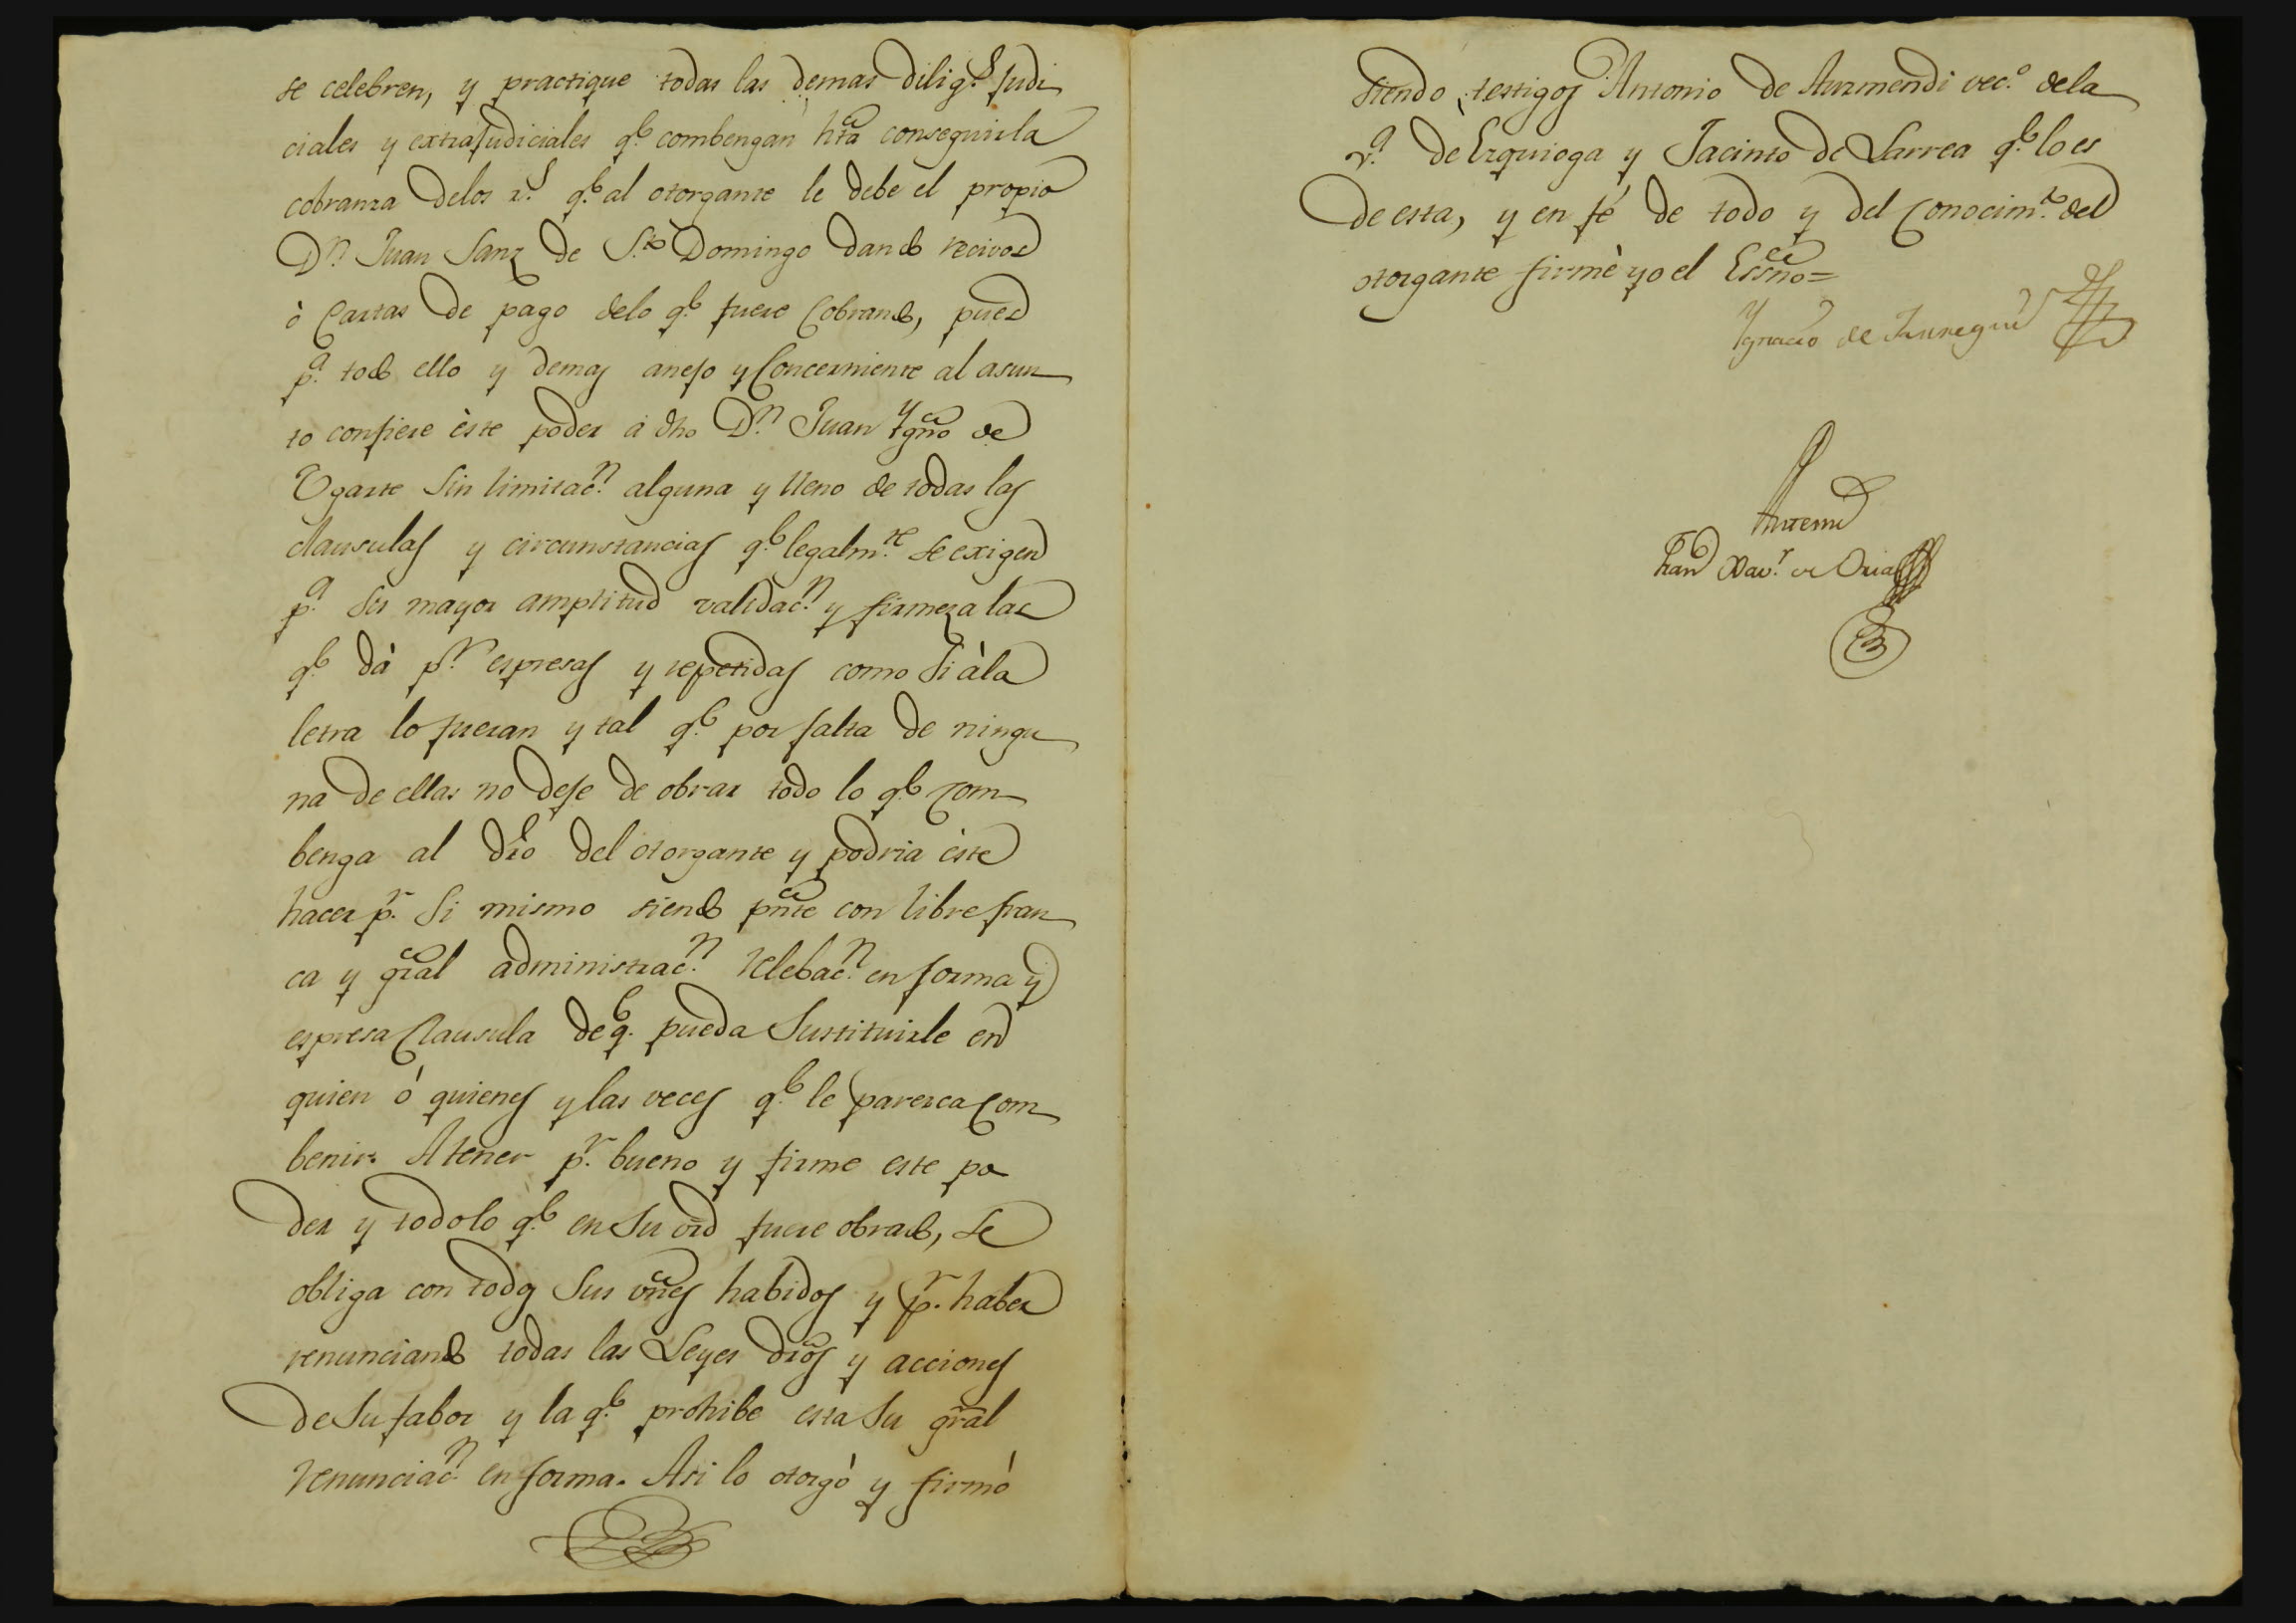 se celebren, y practique todas las demas dilig.s Judi
ciales y extraJudiciales q.e combengan hta conseguir la
cobranza delos r.s q.e al otorgante le debe el propio
D.n Juan Sanz de S.to Domingo dando recivos
ò Cartas de pago delo q.e fuere Cobrando, pues
p.a todo ello y demas anejo y Concerniente al asun
to confiere èste poder à dho D.n Juan Ygno de
Ugarte Sin limitac.n alguna y lleno de todas las
clausulas y circunstancias q.e legalm.te se exigen
p.a su mayor amplitud validac.n y firmeza las
q.e dà p.r espresas y repetidas como Si àla
letra lo fueran y tal q.e por falta de ningu
na de ellas no deje de obrar todo lo q.e com
benga al dro del otorgante y podria èste
hacer p.r Si mismo siendo pnte con libre fran
ca y gral administrac.n relebac.n en forma y
espresa Clausula deq.e pueda Sustituirle en
quien ó quienes y las veces q.e le parezca Com
benir. A tener p.r bueno y firme este po
der y todolo q.e en Su vrd fuere obrado, se
obliga con todos Sus vnes habidos y p.r haber
renunciando todas las Leyes dros y acciones
de Su fabor y la q.e prohibe esta Su gral
renunciac.n en forma. Asi lo otorgò y firmò
siendo testigos Antonio de Aurmendi vec.o dela
v.a de Ezquioga y Jacinto de Larrea q.e lo es
de esta, y en fé de todo y del Conocim.to del
otorgante firmè yo el Essno=
Ygnacio de
Antemi
Fran Xav.r de Oria